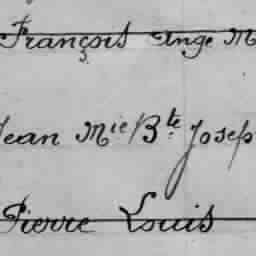 François Ange M
Jean Mie Bte Josep
Pierre Louis